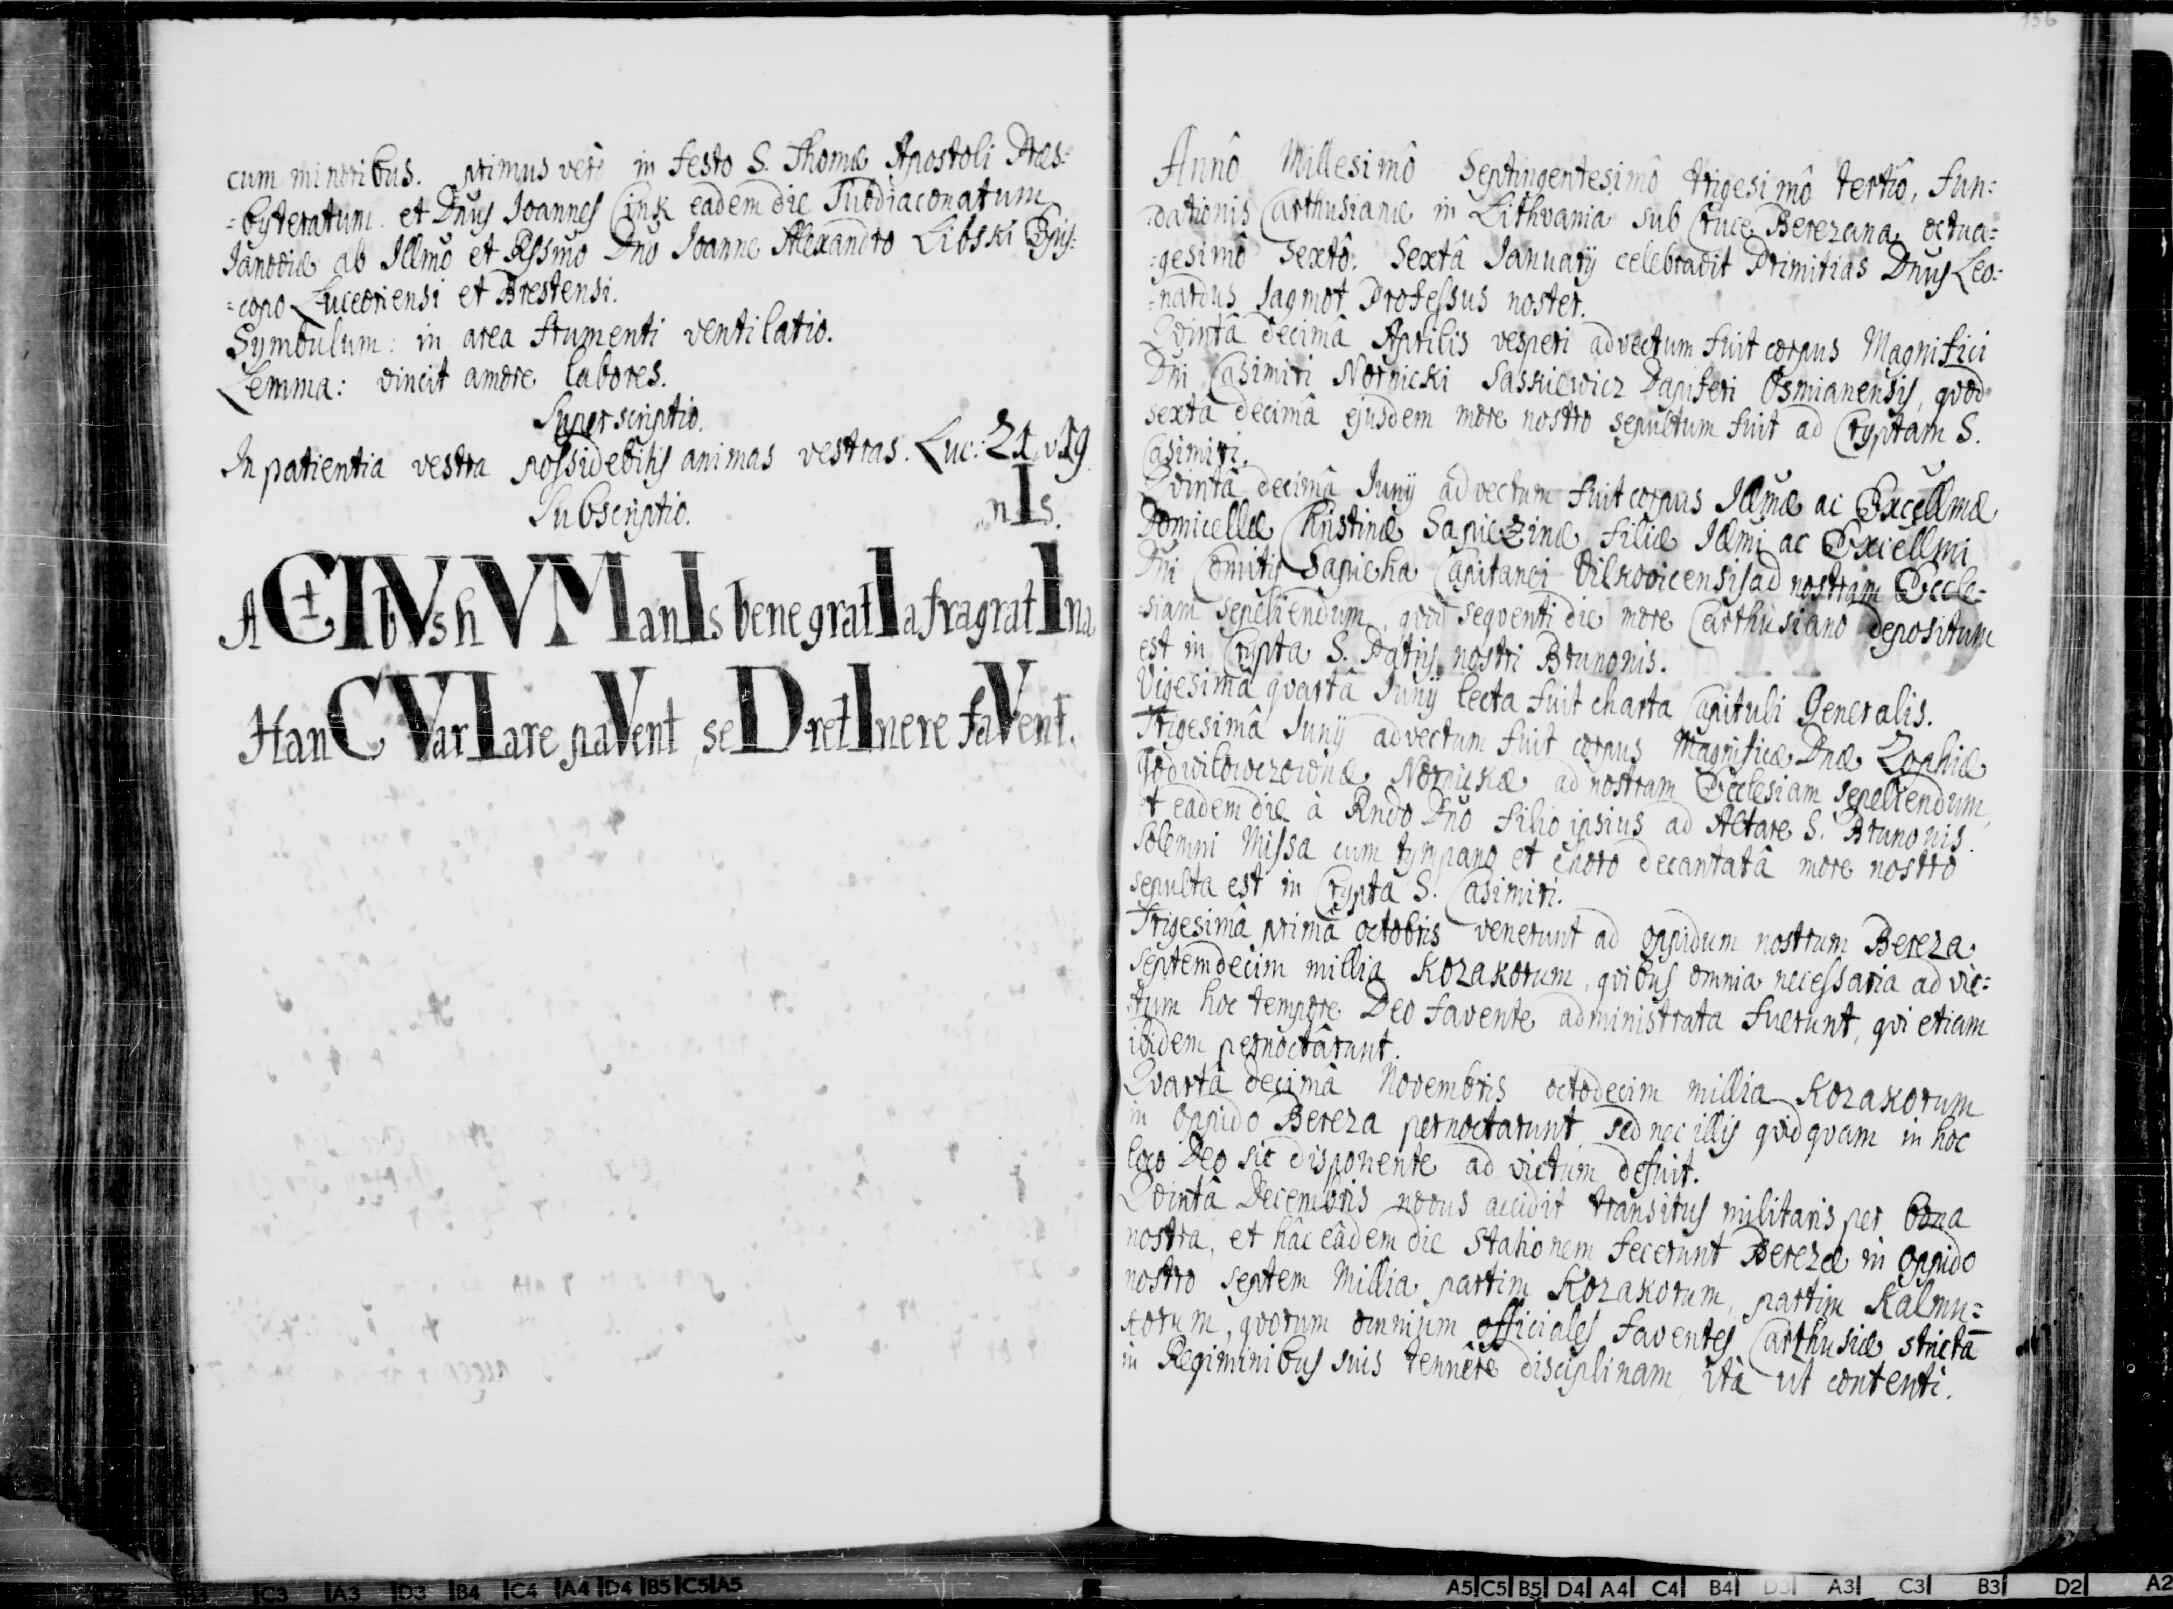 cum minoribus. primus verò in festo S. Thomæ Apostoli Præs:
=byteratum. et Dnus Joannes Cink eadem die Subdiaconatum
Janoviæ ab Illmo et Rssmo Dno Joanne Alexandro Libski Epis:
=copo Luceoriensi et Brestensi.
Symbulum: in area frumenti ventilatio.
Lemma: vincit amore labores.
Superscriptio.
In patientia vestra possidebitis animas vestras. Luc: 21. v. 19.
Subscriptio.
nIs.
A CIbVs hVManIs bene gratIa fragrat In a
Han C VarIare paVent, se D retInere faVent.
156
Annô Millesimô Septingentesimô trigesimô tertiô, fun:
=dationis Carthusianæ in Lithvania sub Cruce Berezana octua=
=gesimô sextô. Sextâ Januarij celebravit Primitias Dnus Leo:
=nardus Jagmot Professus noster.
Qvintâ decimâ Aprilis vesperi advectum fuit corpus Magnifici
Dni Casimiri Nornicki Saskiewicz Dapiferi Osmianensis, qvod
sextâ decimâ ejusdem more nostro sepultum fuit ad Cryptam S.
Casimiri.
Qvintâ decimâ Junij advectum fuit corpus Illmæ ac Excellmæ
Domicellæ Christinæ Sapiezinæ filiæ Illmi ac Excellmi
Dni Comitis Sapieha Capitanei Vilkovicensis ad nostram Eccle=
siam sepeliendum, qvod seqventi die more Carthusiano depositum
est in Crypta S. Patris nostri Brunonis.
Vigesimâ qvartâ Junij lecta fuit charta Capituli Generalis.
Trigesimâ Junij advectum fuit corpus Magnificæ Dnæ Zophiæ
Nornickæ ad nostram Ecclesiam sepeliendum,
et eadem die à Rndo Dno filio ipsius ad Altare S. Brunonis.
Solemni Missa cum tympano et choro decantatâ more nostro
sepulta est in Crypta S. Casimiri.
Trigesimâ primâ octobris venerunt ad oppidum nostrum Bereza
septemdecim millia Kozakorum, qvibus omnia necessaria ad vic=
tum hoc tempore Deo favente administrata fuerunt, qvi etiam
ibidem pernoctârunt.
Qvartâ decimâ Novembris octodecim millia Kozakorum
in oppido Bereza pernoctarunt, sed nec illis qvidqvam in hoc
loco Deo sic disponente ad victum defuit.
Qvintâ Decembris novus accidit transitus militaris per Bona
nostra, et hâc eâdem die stationem fecerunt Berezæ in oppido
nostro septem Millia partim Kozakorum, partim Kalmu=
corum, qvorum omnium officiales faventes Carthusiæ strictā
in Regiminibus suis tenuêre disciplinam ità ut contenti.